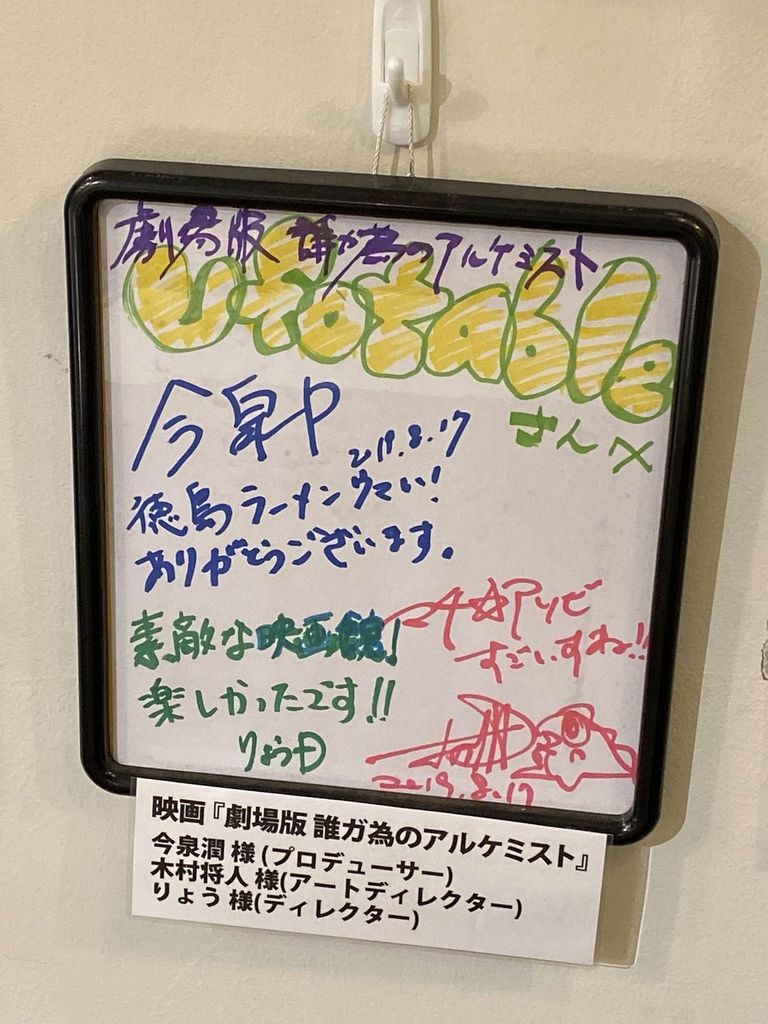 劇場版 誰ガ為のアルケミスト
ufotable
さんへ
今泉P 2019.8.17
徳島ラーメンウマい!
ありがとうございます。
すごいすね!!
素敵な映画館!
楽しかったです!!
りょうD
2019.8.17
映画『劇場版 誰ガ為のアルケミスト』
今泉潤 様 (プロデューサー)
木村将人 様(アートディレクター)
りょう 様(ディレクター)